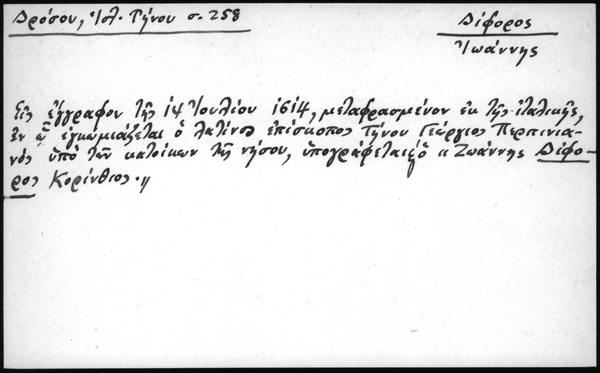 Δρόσου, Ἱστ. Τήνου σ. 258
Δίφορος
Ἰωάννης
Εἰς ἔγγραφον τῆς 14 Ἰουλίου 1614, μεταφρασμένον ἐκ τῆς ἰταλικῆς,
ἐν ᾧ ἐγκωμιάζεται ὁ λατῖνος ἐπίσκοπος Τήνου Γεώργιος Περπινιά-
νός ὑπό τῶν κατοίκων τῆς νήσου, ὑπογράφεται ὁ κ Ἰωάννης Δίφο-
ρος Κορίνθιος.